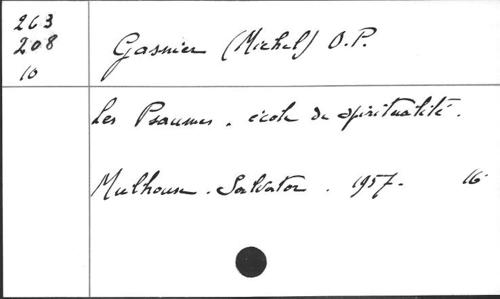 263
208
10
Gasnier (Michel) O.P.
Les Psaumes. école de spiritualité.
Mulhouse. Salvator. 1957. 16